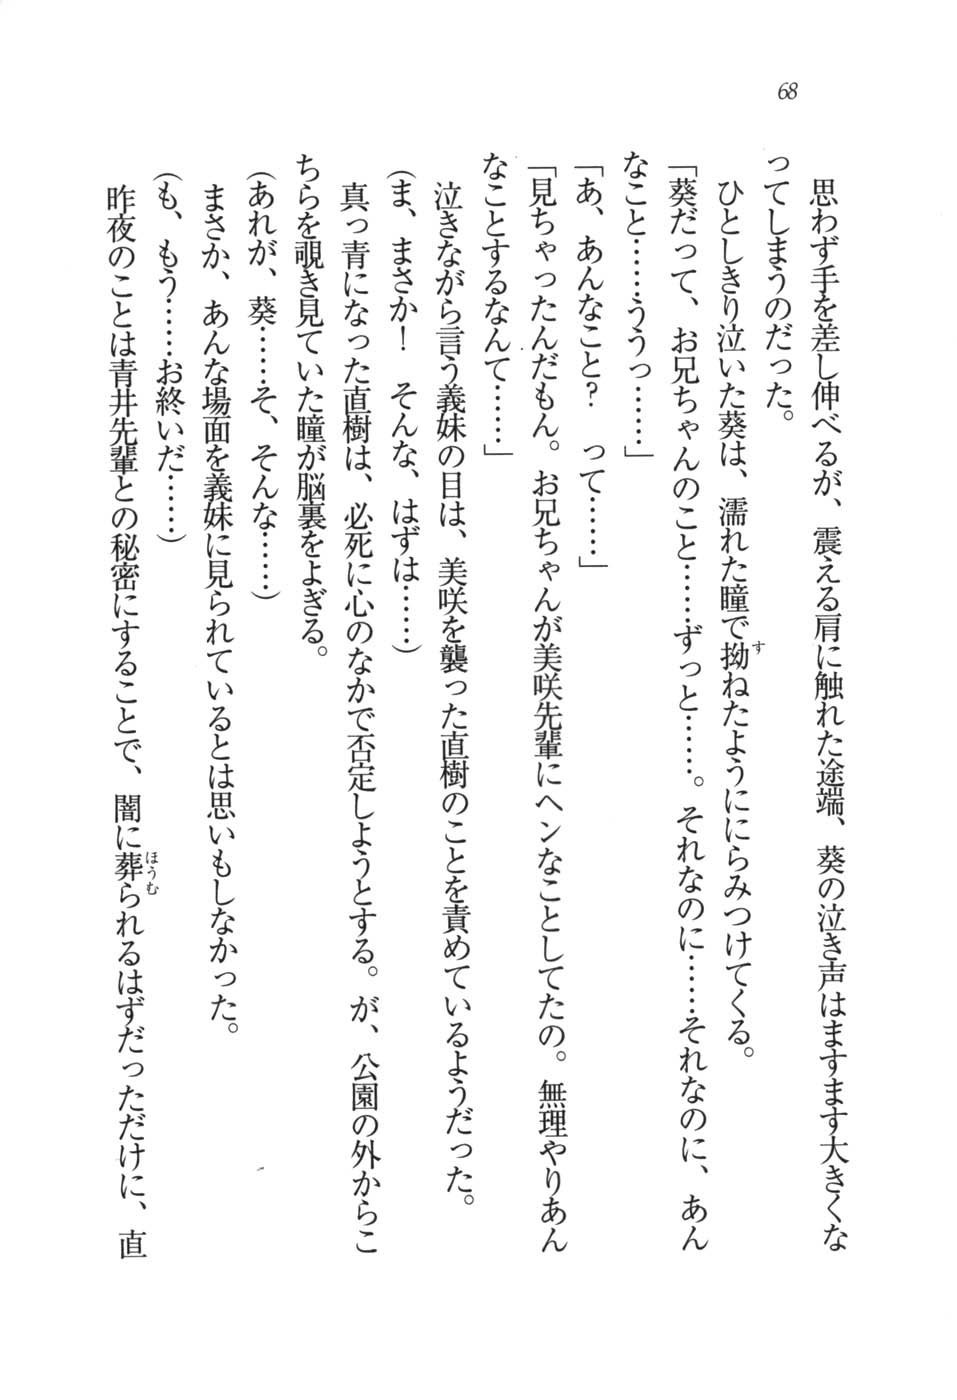 68
思わず手を差し伸べるが、震える肩に触れた途端、葵の泣き声はますます大きくな
ってしまうのだった。
ひとしきり泣いた葵は、濡れた瞳で拗ねたようににらみつけてくる。
「葵だって、お兄ちゃんのこと……ずっと……。それなのに……それなのに、あん
なこと……ううっ……」
「あ、あんなこと？　って……」
「見ちゃったんだもん。お兄ちゃんが美咲先輩にヘンなことしてたの。無理やりあん
なことするなんて……」
泣きながら言う義妹の目は、美咲を襲った直樹のことを責めているようだった。
（ま、まさか！　そんな、はずは……）
真っ青になった直樹は、必死に心のなかで否定しようとする。が、公園の外からこ
ちらを覗き見ていた瞳が脳裏をよぎる。
（あれが、葵……そ、そんな……）
まさか、あんな場面を義妹に見られているとは思いもしなかった。
（も、もう……お終いだ……）
昨夜のことは青井先輩との秘密にすることで、闇に葬られるはずだっただけに、直
す
ほうむ